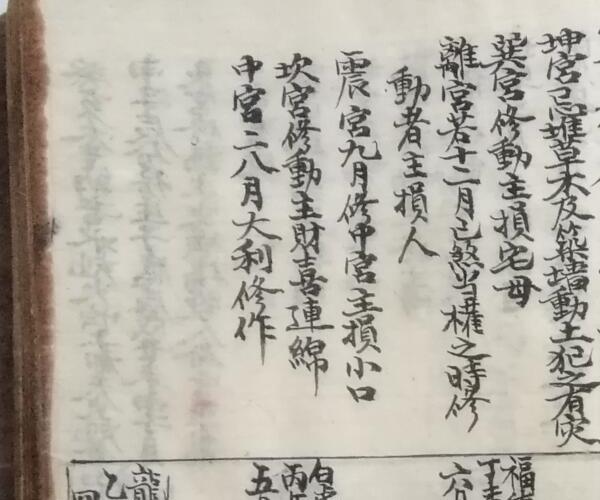 坤宮忌堆草木及築墻動土犯之有灾
巽宮修動主損宅母
離宮若十二月已煞当權之時修
動者主損人
震宮九月修中宮主損小口
坎宮修動主財喜連綿
中宮二八月大利修作
福
丁
六
白
丙
五
龍
乙
四